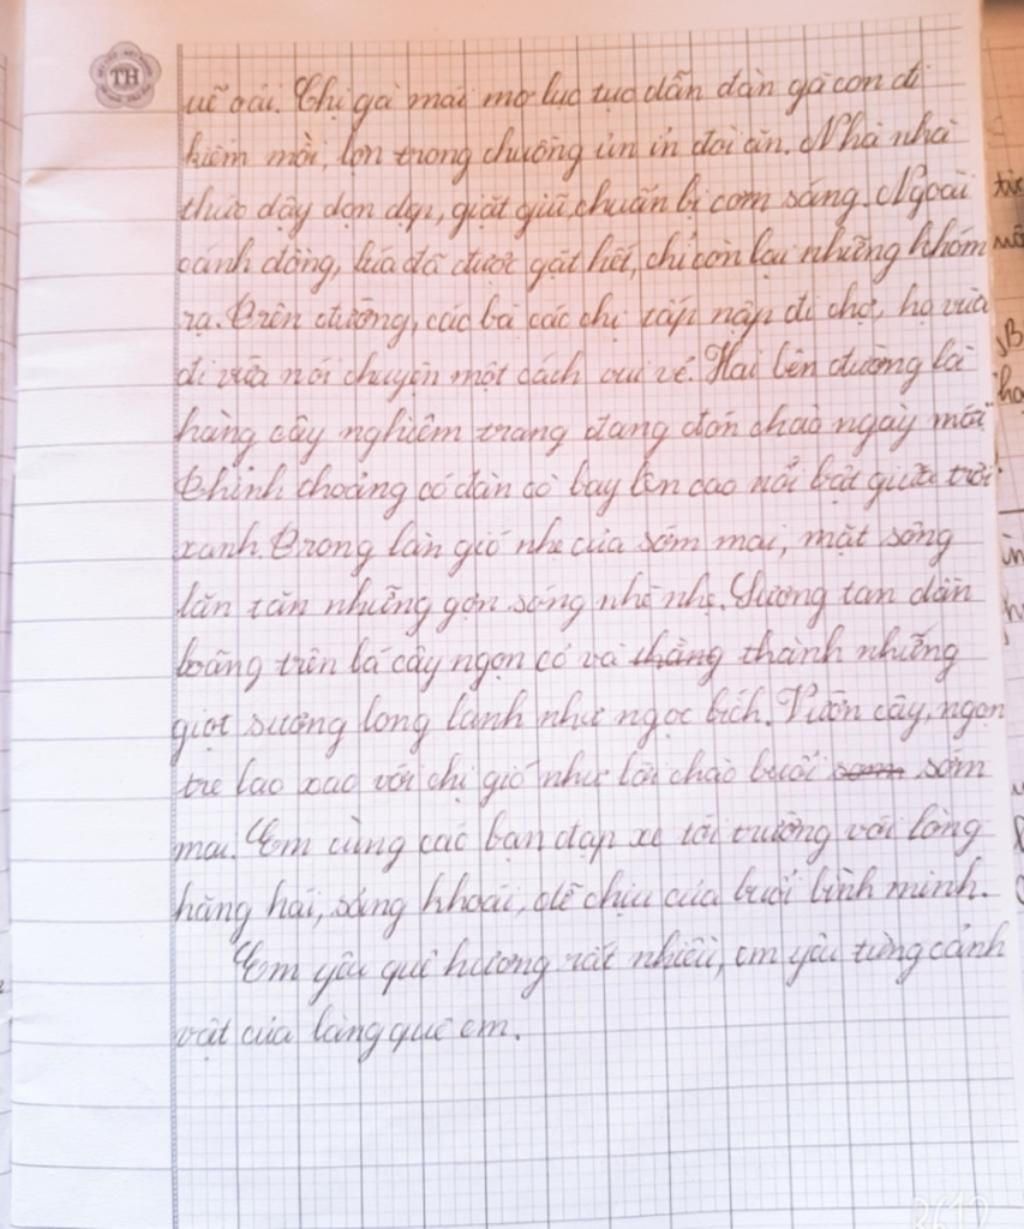 TH
uể oải. Chị gà mái mơ lục tục dẫn đàn gà con đi
kiếm mồi, lợn trong chuồng ủn ỉn đòi ăn. Nhà nhà
thức dậy dọn dẹp, giặt giũ, chuẩn bị cơm sáng. Ngoài
cánh đồng, lúa đã được gặt hết, chỉ còn lại những khóm
rạ. Trên đường, các bà các chị tấp nập đi chợ, họ vừa
đi vừa nói chuyện một cách vui vẻ. Hai bên đường là
hàng cây nghiêm trang đang đón chào ngày mới
Thỉnh thoảng có đàn cò bay lên cao nổi bật giữa trời
xanh. Trong làn gió nhẹ của sớm mai, mặt sông
lăn tăn những gợn sóng nhè nhẹ. Sương tan dần
loãng trên lá cây ngọn cỏ và thành những
giọt sương long lanh như ngọc bích. Vườn cây, ngọn
tre lao xao với chị gió như lời chào buổi sớm
mai. Em cùng các bạn đạp xe tới trường với lòng
hăng hái, sảng khoái, dễ chịu của buổi bình minh.
Em yêu quê hương rất nhiều, em yêu từng cảnh
vật của làng quê em.